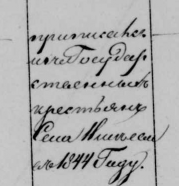 приписанъ
изъ Государ
ственныхъ
крестьянъ
Села
въ 1844 Году.